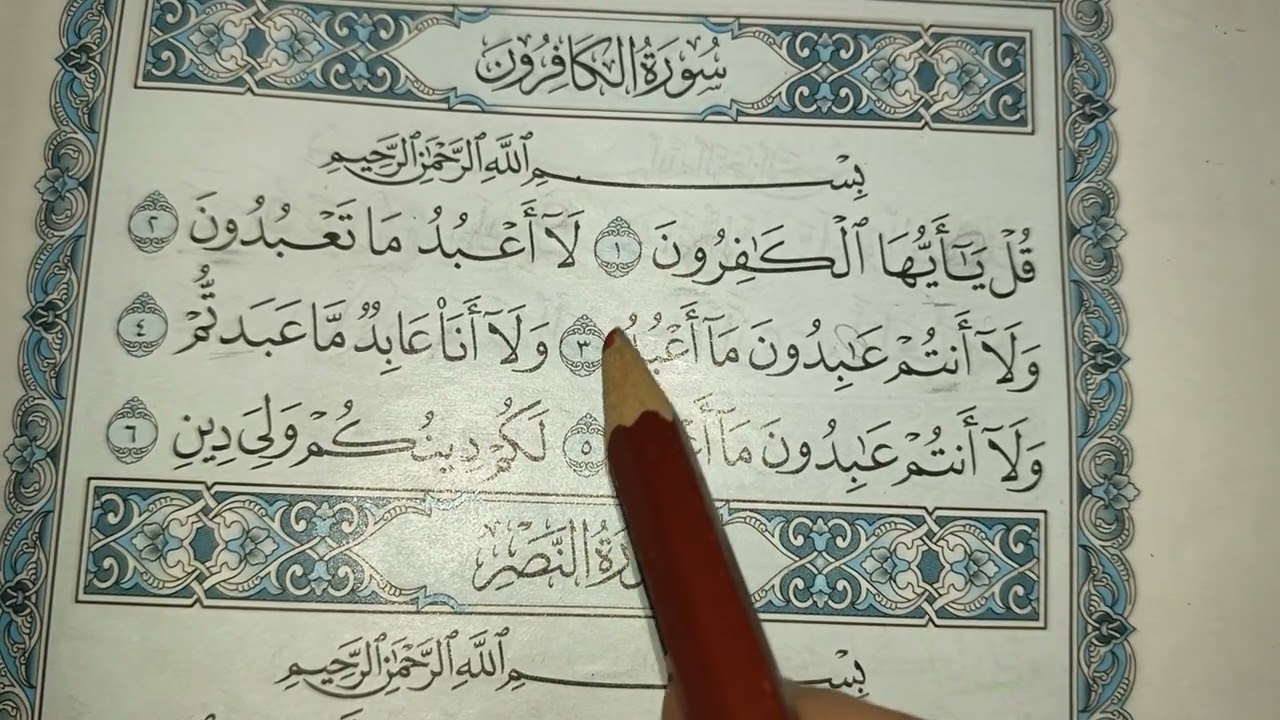 سُورَةُ الكَافِرُونَ
بِسْمِ ٱللَّهِ ٱلرَّحْمَٰنِ ٱلرَّحِيمِ
قُلْ يَٰٓأَيُّهَا ٱلْكَٰفِرُونَ ١ لَآ أَعْبُدُ مَا تَعْبُدُونَ ٢
وَلَآ أَنتُمْ عَٰبِدُونَ مَآ أَعْبُدُ ٣ وَلَآ أَنَا۠ عَابِدٌ مَّا عَبَدتُّمْ ٤
وَلَآ أَنتُمْ عَٰبِدُونَ مَآ ٥ لَكُمْ دِينُكُمْ وَلِىَ دِينِ ٦
النَّصْرِ
بِسْمِ ٱللَّهِ ٱلرَّحْمَٰنِ ٱلرَّحِيمِ